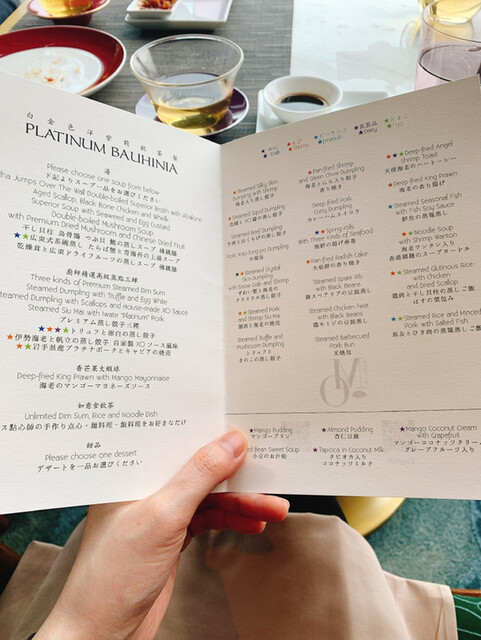 白金色洋紫荊飲茶餐
PLATINUM BAUHINIA
湯
Please choose one soup from below
下記よりスープ一品をお選びください
Jumps Over The Wall Double-boiled Superior Broth with Abalone
Aged Scallop, Black Bone Chicken and Whelk
Superior Soup with Seaweed and Egg Custard
Double-boiled Mushroom Soup
with Premium Dried Mushroom and Chinese Dried Fruit
Three kinds of Premium Steamed Dim Sum
Steamed Dumpling with Truffle and Egg White
Steamed Dumpling with Scallops and House-made XO Sauce
Steamed Siu Mai with Iwate "Platinum" Pork
プレミアム蒸し餃子三種
★★★★トリュフと卵白の蒸し餃子
★伊勢海老と帆立の蒸し餃子 自家製XOソース風味
★★岩手県産プラチナポークとキャビアの焼売
香芒果大蝦球
Deep-fried King Prawn with Mango Mayonnaise
海老のマンゴーマヨネーズソース
如意食飲茶
Unlimited Dim Sum, Rice and Noodle Dish
甜品
Please choose one dessert
デザートを一品お選びください
★かに Crab
★えび Shrimp
★ピーナッツ peanuts
★乳製品 Dairy
★たまご Egg
★Steamed Silky Skin
Dumpling with Shrimp
海老入り蒸し餃子
★Steamed Squid Dumpling
with XO Sauce
Steamed Beef Dumpling
Pork Xiao Long Bao Dumpling
小籠包
★★Steamed Crystal
Skin Dumpling
with Snow Crab and Shrimp
★★Steamed Pork
and Shrimp Siu Mai
豚肉と海老の焼売
Steamed Truffle and
mushroom Dumpling
トリュフと
きのこの蒸し餃子
★Pan fried Shrimp
and Green Chive Dumpling
海老とにら入り餃子
香り焼き
Deep fried Pork
Curry Dumpling
カレーハムスイコウ
★Spring rolls
with Three Kinds of Seafood
海鮮の揚げ春巻
★Pan fried Radish Cake
大根餅の香り焼き
Steamed Spare Rib
with Black Beans
豚スペアリブの豆豉蒸し
Steamed Chicken Feet
with Black Beans
鶏モミジの豆豉蒸し
Steamed Barbecued
Pork Bun
叉焼包
★★★Deep-fried Angel
Shrimp Toast
天使海老のハートーシー
★Deep-fried King Prawn
海老の香り揚げ
Steamed Seasonal Fish
with Fish Soy Sauce
鮮魚の魚醤蒸し
★★Noodle Soup
with Shrimp Wanton
海老ワンタン入り
香港麺麺のスープヌードル
★Steamed Glutinous Rice
with Chicken
and Dried Scallop
鶏肉と干し貝柱の蒸しご飯
はすの葉包み
★★Steamed Rice and Minced
Pork with Salted Fish
魚友とひき肉の蒸篭蒸しご飯
★Mango Pudding
マンゴープリン
★Almond Pudding
杏仁豆腐
★Mango Coconut Cream
with Grapefruit
マンゴーココナッツクリーム
グレープフルーツ入り
Red Bean Sweet Soup
小豆のお汁粉
★Tapioca in Coconut Milk
タピオカ入り
ココナッツミルク